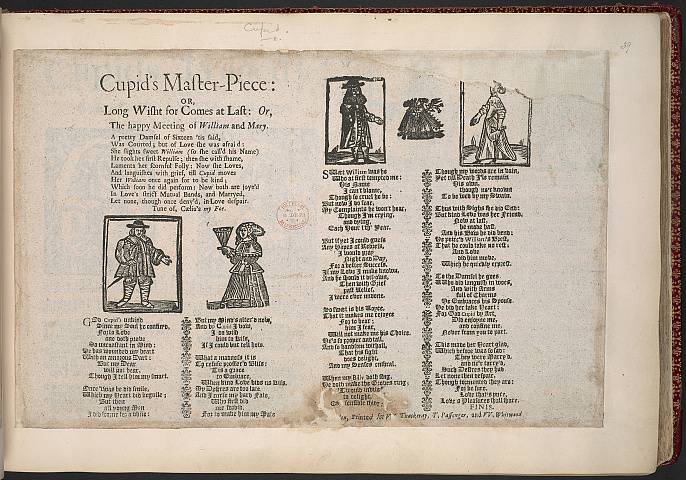 Cupid's Master-Piece:
OR,
Long Wisht for Comes at Last: Or,
The happy Meeting of William and Mary.
A pretty Damsel of Sixteen 'tis said,
Was Courted; but of Love she was afraid:
She slights sweet William (so she call'd his Name)
He took her first Repulse; then she with shame,
Laments her scornful Folly: Now she Loves,
And languishes with grief, till Cupid moves
Her William once again for to be kind;
Which soon he did perform: Now both are joy'd
In Love's strict Mutual Bands, and Marryed,
Let none, though once deny'd, in Love despair.
Tune of, Cælia's my Foe.
GOd Cupid's unkind
Since my Doom he confirm'd,
For to Love
one doth prove
So unconstant in Mind:
He has wounded my heart
With an amorous Dart:
But my Dear
will not hear,
Though I tell him my smart.
Once Willy he did smile,
Which my Heart did beguile;
But then
all young Men
But my Mind's alter'd now,
And to Cupid I bow,
I do wish
him to kiss,
If I could but tell how.
What a madness it is
To refuse proffer'd Bliss:
'Tis a grace
to Embrace,
When kind Love bids us kiss.
My Desires are too late
And I curse my hard Fate,
Who first did
me forbid,
For to make him my Mate
SWeet William was he
Who at first tempted me:
His Name
I can't blame,
Though so cruel he be:
But now I do fear,
My Complaints he won't hear,
Though I'm crying,
and dying,
Each Hour i'th' Year.
But if yet I could guess
Any hopes of Redress,
I would pray
Night and Day,
For a better Success.
If my Love I make known,
And he should it disown,
Then with Grief
past Relief,
I were ever undone.
So sweet is his Voyce,
That it makes me rejoyce
For to hear:
but I fear,
Will not make me his Choice.
He's so proper and tall,
And so handsom withall,
That his sight
does delight,
And my Senses enthral.
When my Bells doth Ring,
Though my words are in vain,
Yet till Death I'le remain
His own,
though not known
To be wed by my Swain.
Thus with Sighs she did End:
But kind Love was her Friend,
Now at last,
he made hast,
And his Bow he did bend:
He pierc'd William's Brest,
That he could take no rest
And Love
did him move,
Which he quickly exprest.
To the Damsel he goes
Who did languish in woes,
And with Arms
full of Charms
He Embraces his Spouse.
He did her take Heart:
For God Cupid by Art,
Did engage me,
and confine me,
Never from you to part.
This made her Heart glad,
Which before was so sad:
they were Marry'd,
and ne'r vary'd,
Such Desires they had.
Let none then despair,
Though tormented they are:
For be sure,
Love that's pure,
Love's Pleasures shall share.
FINIS.
Printed for
Thackeray, T. Passenger, and W. Whitwood